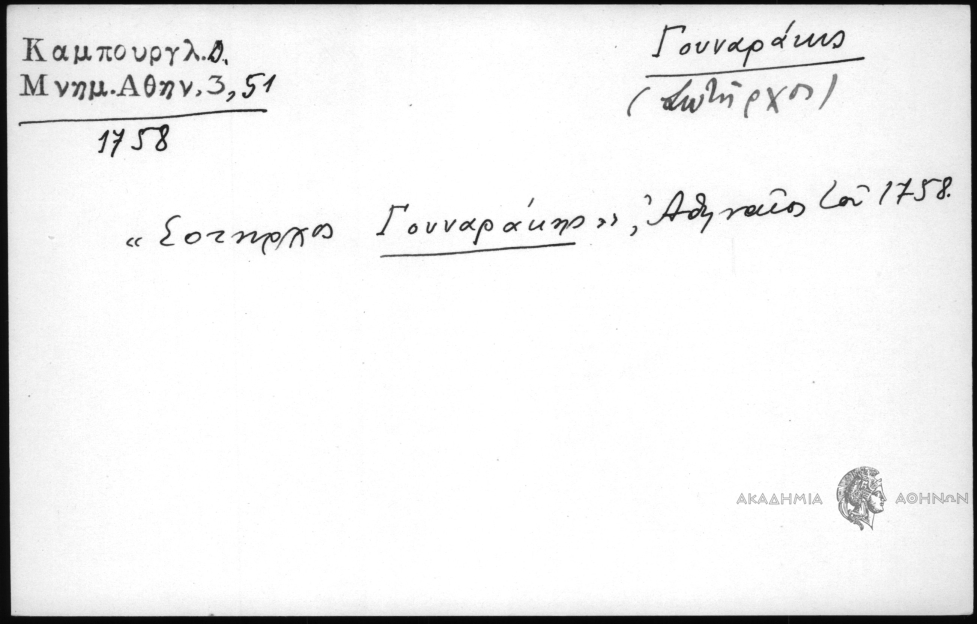 Καμπουργλ.Δ.
Μνημ.Αθην.3,51
1758
Γουναράκης
(Σωτήρχος)
« Σοτηρχος Γουναράκης », Ἀθηναῖος τοῦ 1758.
ΑΚΑΔΗΜΙΑ ΑΘΗΝΩΝ